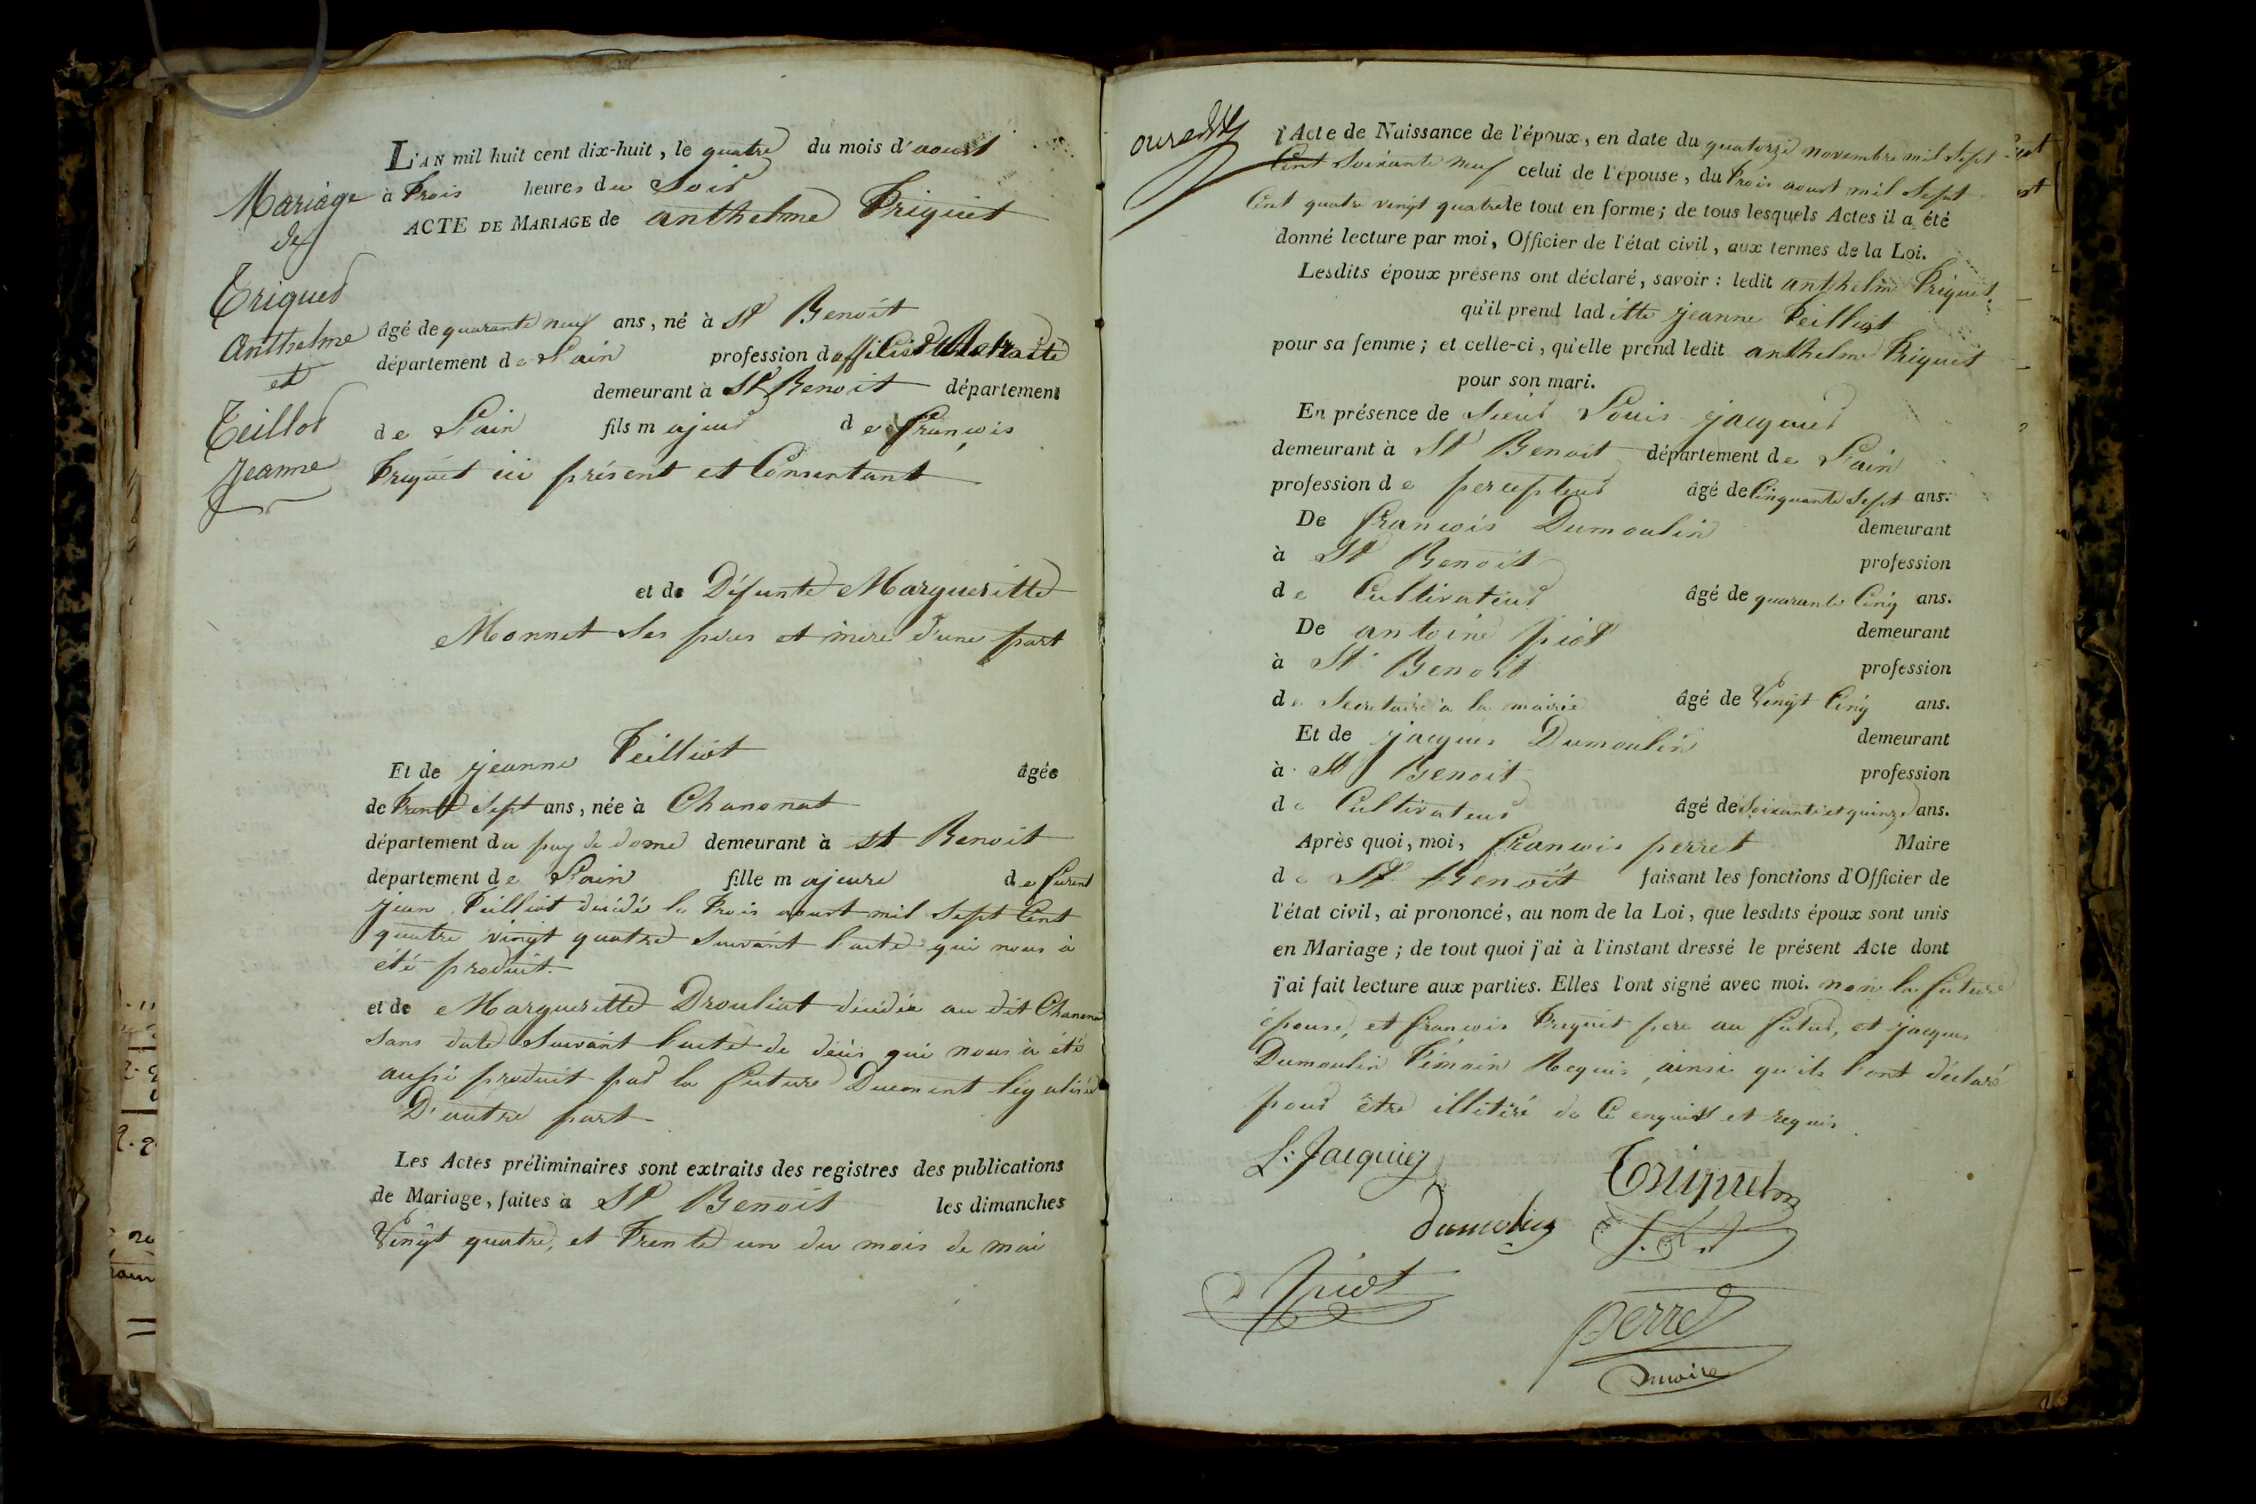 Mariage
de
Triquet
Anthelme
et
Teillot
Jeanne
L'AN mil huit cent dix-huit, le quatre du mois d'aoust
à trois heures du soir
ACTE DE MARIAGE de anthelme Triquet
âgé de quarante neuf ans, né à St Benoit
département de l'ain profession d'officier
demeurant à St Benoit département
de l'ain fils majeur de françois
Triquet ici présent et Consentant
et de Défunte Margueritte
Monnet ses peres et mere d'une part
Et de jeanne Teilliot âgée
de trente sept ans, née à Chanonat
département du puy de dome demeurant à St Benoit
département de l'ain fille majeure de furent
jean Teilliot décédé le trois aoust mil sept Cent
quatre vingt quatre suivant l'acte qui nous à
été produit.
et de Margueritte Drouliat décédée au dit Chanona
sans date suivant l'acte de décès qui nous à été
aussi produit par la future Duement légalisée
D'autre part
Les Actes préliminaires sont extraits des registres des publications
de Mariage, faites à St Benoit les dimanches
Vingt quatre, et trente un du mois de mai
l'Acte de Naissance de l'époux, en date du quatorze novembre mil sept
Cent soixante neuf celui de l'épouse, du trois aoust mil sept
Cent quatre vingt quatre le tout en forme; de tous lesquels Actes il a été
donné lecture par moi, Officier de l'état civil, aux termes de la Loi.
Lesdits époux présens ont déclaré, savoir: ledit anthelme Triquet
qu'il prend laditte jeanne Teilliot
pour sa femme; et celle-ci, qu'elle prend ledit anthelme Triquet
pour son mari.
En présence de Sieur Louis jacquier
demeurant à St Benoit département de l'ain
profession de percepteur âgé de Cinquante sept ans.
De françois Dumoulin demeurant
à St Benoit profession
de Cultivateur âgé de quarante Cinq ans.
De antoine piot demeurant
à St Benoit profession
de Secretaire a la mairie âgé de Vingt Cinq ans.
Et de jacques Dumoulin demeurant
à St Benoit profession
de Cultivateur âgé de soixante et quinze ans.
Après quoi, moi, françois perret Maire
de St Benoit faisant les fonctions d'Officier de
l'état civil, ai prononcé, au nom de la Loi, que lesdits époux sont unis
en Mariage; de tout quoi j'ai à l'instant dressé le présent Acte dont
j'ai fait lecture aux parties. Elles l'ont signé avec moi. non la future
épouse, et françois Triquet pere au futur, et jacques
Dumoulin Témoin Requis, ainsi qu'ils l'ont déclaré
pour être illitiré de Ce enquis et requis
L: Jacquier
Triquet
dumolin
piot
perret
maire